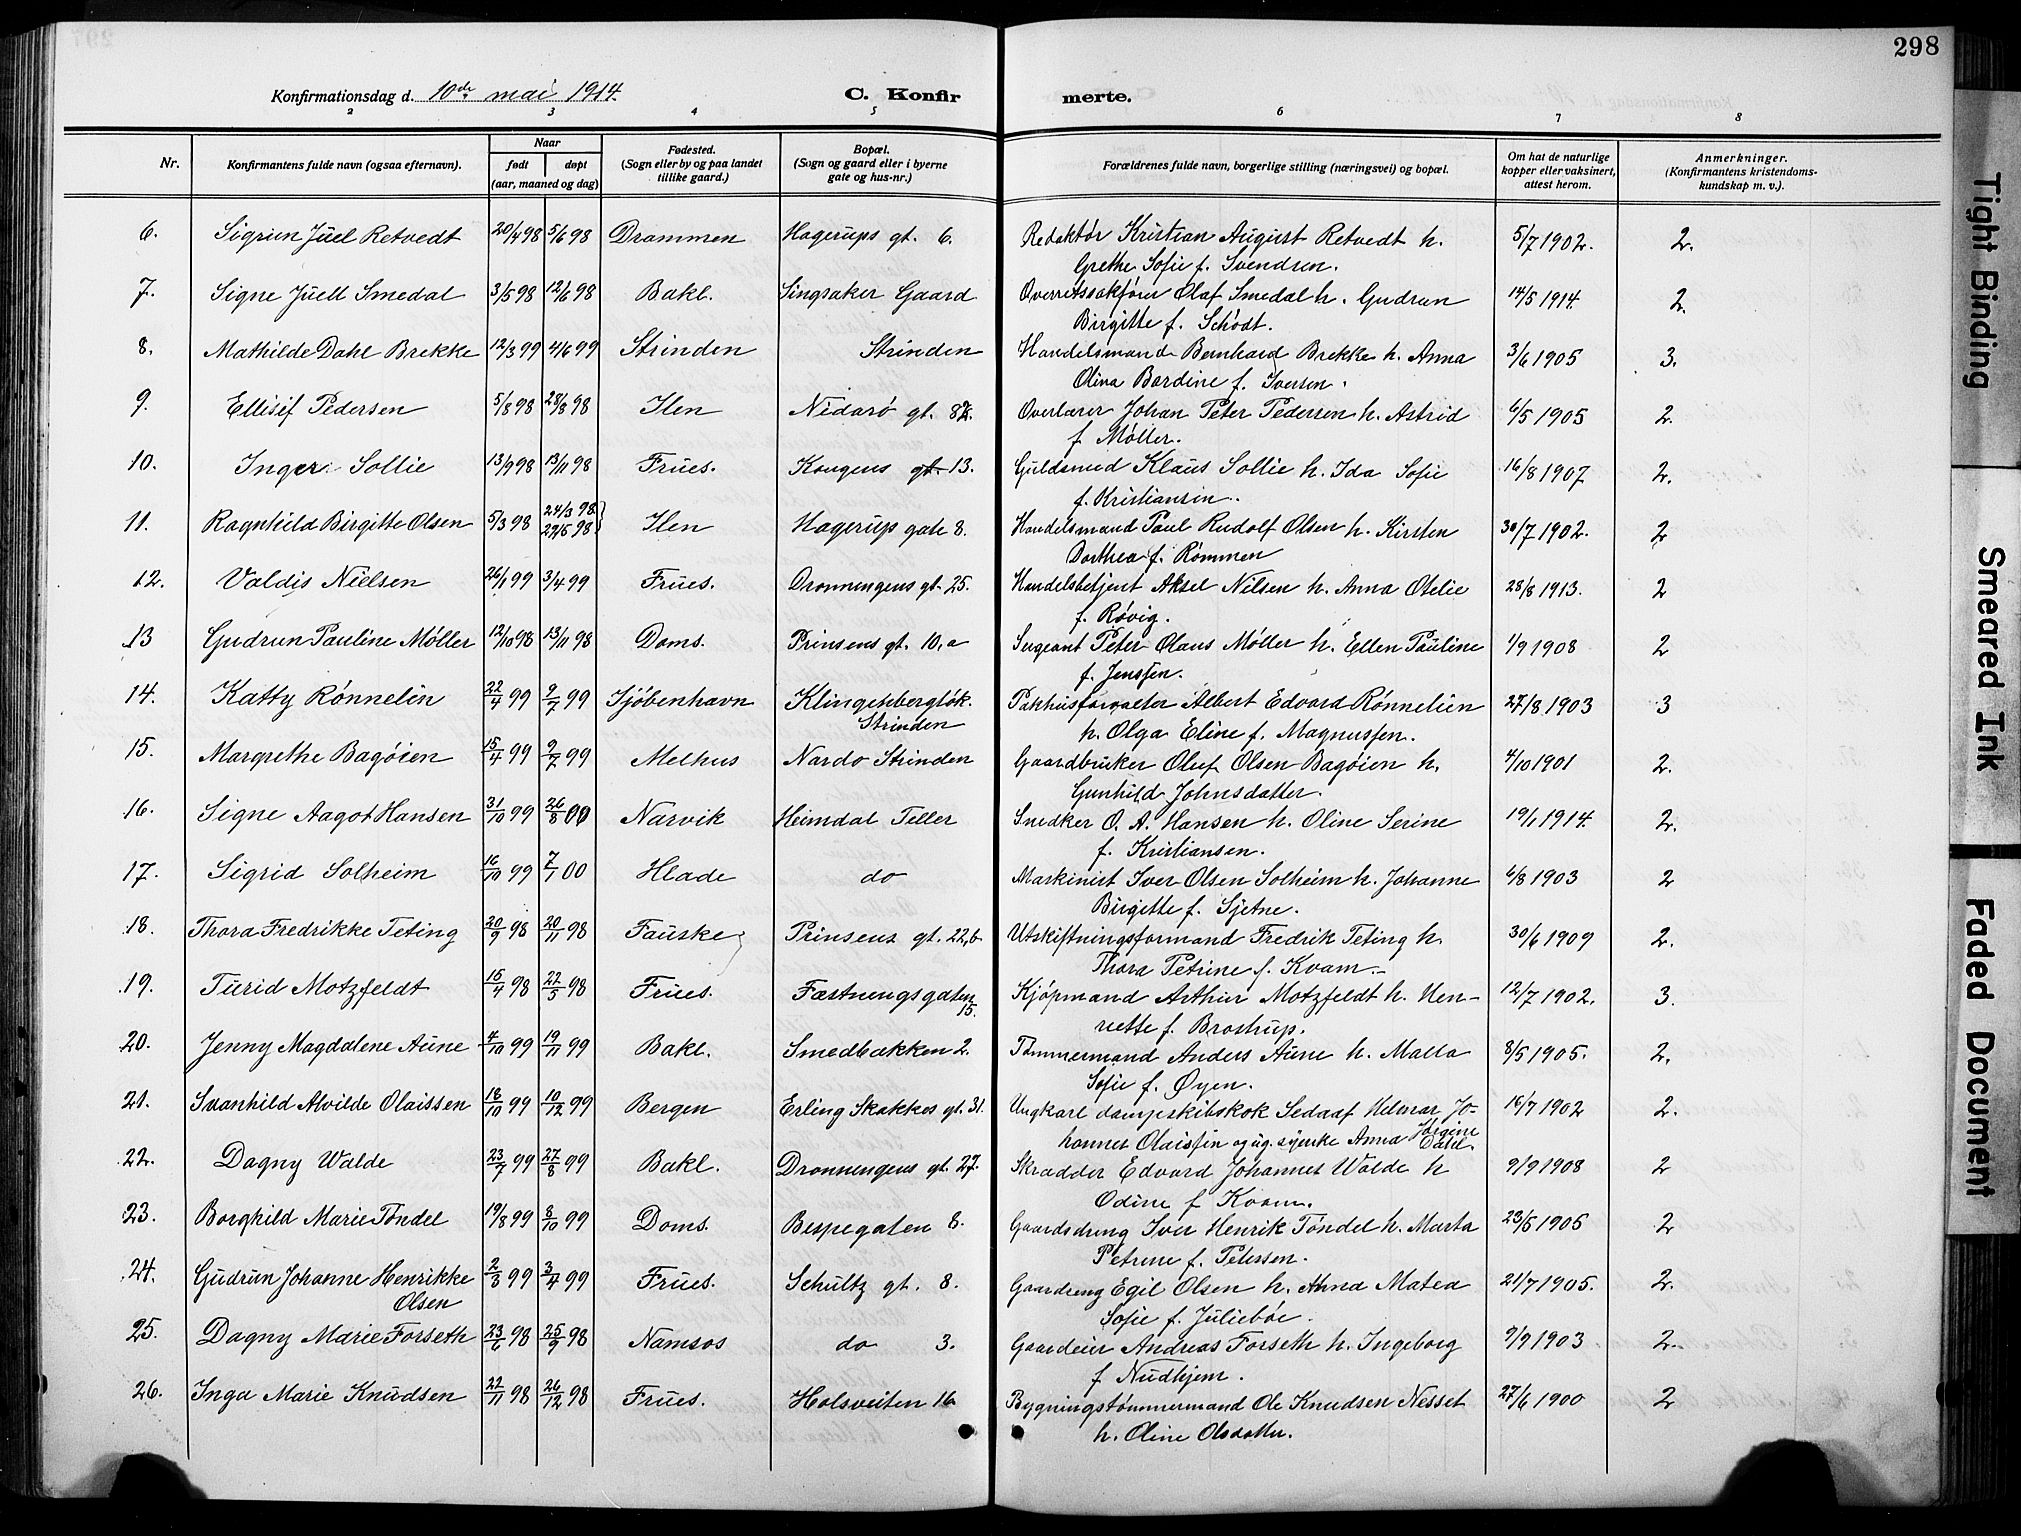 298
Konfirmationsdag d. 10de mai 1914.
C. Konfirmerte.
2 3 4 5 6 7 8
Nr. Konfirmantens fulde navn (ogsaa efternavn). Naar født døpt (aar, maaned og dag) Fødested. (Sogn eller by og paa landet tillike gaard.) Bopæl. (Sogn og gaard eller i byerne gate og hus-nr.) Forældrenes fulde navn, borgerlige stilling (næringsvei) og bopæl. Om hat de naturlige kopper eller vaksinert, attest herom. Anmerkninger. (Konfirmantens kristendomskundskap m. v.).
6. Sigrun Juel Retvedt 20/4 98 5/6 98 Drammen Hagerups gt. 6. Redaktør Kristian August Retvedt h. 5/7 1902. 2.
Grethe Sofie f. Svendsen.
7. Signe Juell Smedal 3/5 98 12/6 98 Bakl. Singsaker Gaard Overretssakfører Olaf Smedal h. Gudrun 14/5 1914. 2.
Birgitte f. Schødt.
8. Mathilde Dahl Brekke 12/3 99 4/6 99 Strinden Strinden Handelsmand Bernhard Brekke h. Anna 3/6 1905 3.
Oliva Bardine f. Iversen.
9. Ellisif Pedersen 5/8 98 28/8 98 Ilen Nidarø gt. Overlærer Johan Peter Pedersen h. Astrid 6/5 1905 2.
f. Møller.
10. Inger Sollie 13/9 98 13/11 98 Frues. Kongens gt. 13. Guldsmed Klaus Sollie h. Ida Sofie 16/8 1907 2.
f. Kristiansen.
11. Ragnhild Birgitte Olsen 5/3 98 24/3 98. 29/5 98 Ilen Hagerup gate 8. Handelsmand Paul Rudolf Olsen h. Kirsten 30/7 1902. 2
Dorthea f. Rømmen
12. Valdis Nielsen 26/1 99 3/4 99 Frues. Dronningens gt. 25. Handelsbetjent Aksel Nilsen h. Anna Otelie 28/8 1913. 2
f. Røvig.
13 Gudrun Pauline Møller 12/10 98 13/11 98 Doms. Prinsens gt. 10, a Sergeant Peter Olaus Møller h. Ellen Pauline 1/9 1908 2
f. Jenssen.
14. Katty Rønnelin 22/4 99 9/7 99 Kjøbenhavn Klingenbergløk. Pakhusforvalter Albert Edvard Rønnelien 27/8 1903 3
Strinden h. Olga Eline f. Magnussen.
15. Margrethe Bagøien 15/4 99 9/7 99 Melhus Nardo Strinden Gaardbruker Oluf Olsen Bagøien h. 4/10 1901 2.
Gunhild Johnsdatter.
16. Signe Aagot Hansen 31/10 99 26/8 00 Narvik Heimdal Tiller Snedker O. A. Hansen h. Oline Serine 19/1 1914. 2.
f. Kristiansen.
17. Sigrid Solheim 16/10 99 7/1 00 Hlade do Maskinist Iver Olsen Solheim h. Johanne 6/8 1903 2
Birgitte f. Sjetne.
18. Thora Fredrikke Teting 20/9 98 20/11 98 Fauske Prinsens gt. 22,b Utskiftningsformand Fredrik Teting h. 30/6 1909 2.
Thora Petrine f. Kvam.
19. Turid Motzfeldt 15/4 98 22/5 98 Frues. Fæstningsgaten Kjøpmand Arthur Motzfeldt h. Hen- 12/7 1902. 3.
15. riette f. Brostrup.
20. Jenny Magdalene Aune 4/10 99 19/11 99 Bakl. Smedbakken 2. Tømmermand Anders Aune h. Malla 8/5 1905. 2.
Sofie f. Øyen.
21. Svanhild Alvilde Olaissen 18/10 99 10/12 99 Bergen Erling Skakkes gt. 31. Ungkarl dampskibskok Sedaaf Helmar Jo- 16/7 1902 2.
hannes Olaissen og ug. syerske Anna Jørgine Dahl.
22. Dagny Walde 23/7 99 27/8 99 Bakl. Dronningens gt. 27. Skrædder Edvard Johannes Walde h 9/9 1908 2
Odine f Kvam.
23. Borghild Marie Tøndel 19/8 99 8/10 99 Doms. Bispegaten 8. Gaardsdreng Iver Henrik Tøndel h. Marta 23/5 1905 2
Petrine f. Petersen.
24. Gudrun Johanne Henrikke 2/3 99 3/4 99 Frues. Schultz gt. 8. Gaardreng Egil Olsen h. Anna Matea 21/7 1905. 2.
Olsen Sofie f. Juliebøe.
25. Dagny Marie Forseth 23/6 98 25/9 98 Namsos do 3. Gaardeier Andreas Forseth h. Ingeborg 9/9 1903 2.
f Nudhjem.
26. Inga Marie Knudsen 22/11 98 26/12 98 Frues. Holsveiten 16 Bygningstømmermand Ole Knudsen Nesset 27/6 1900 2
h. Oline Olsdatter.
Tight Binding
Smeared Ink
Faded Document